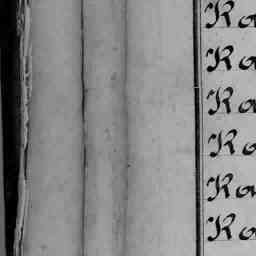 Ra
Ra
Ra
Ra
Ra
Ra